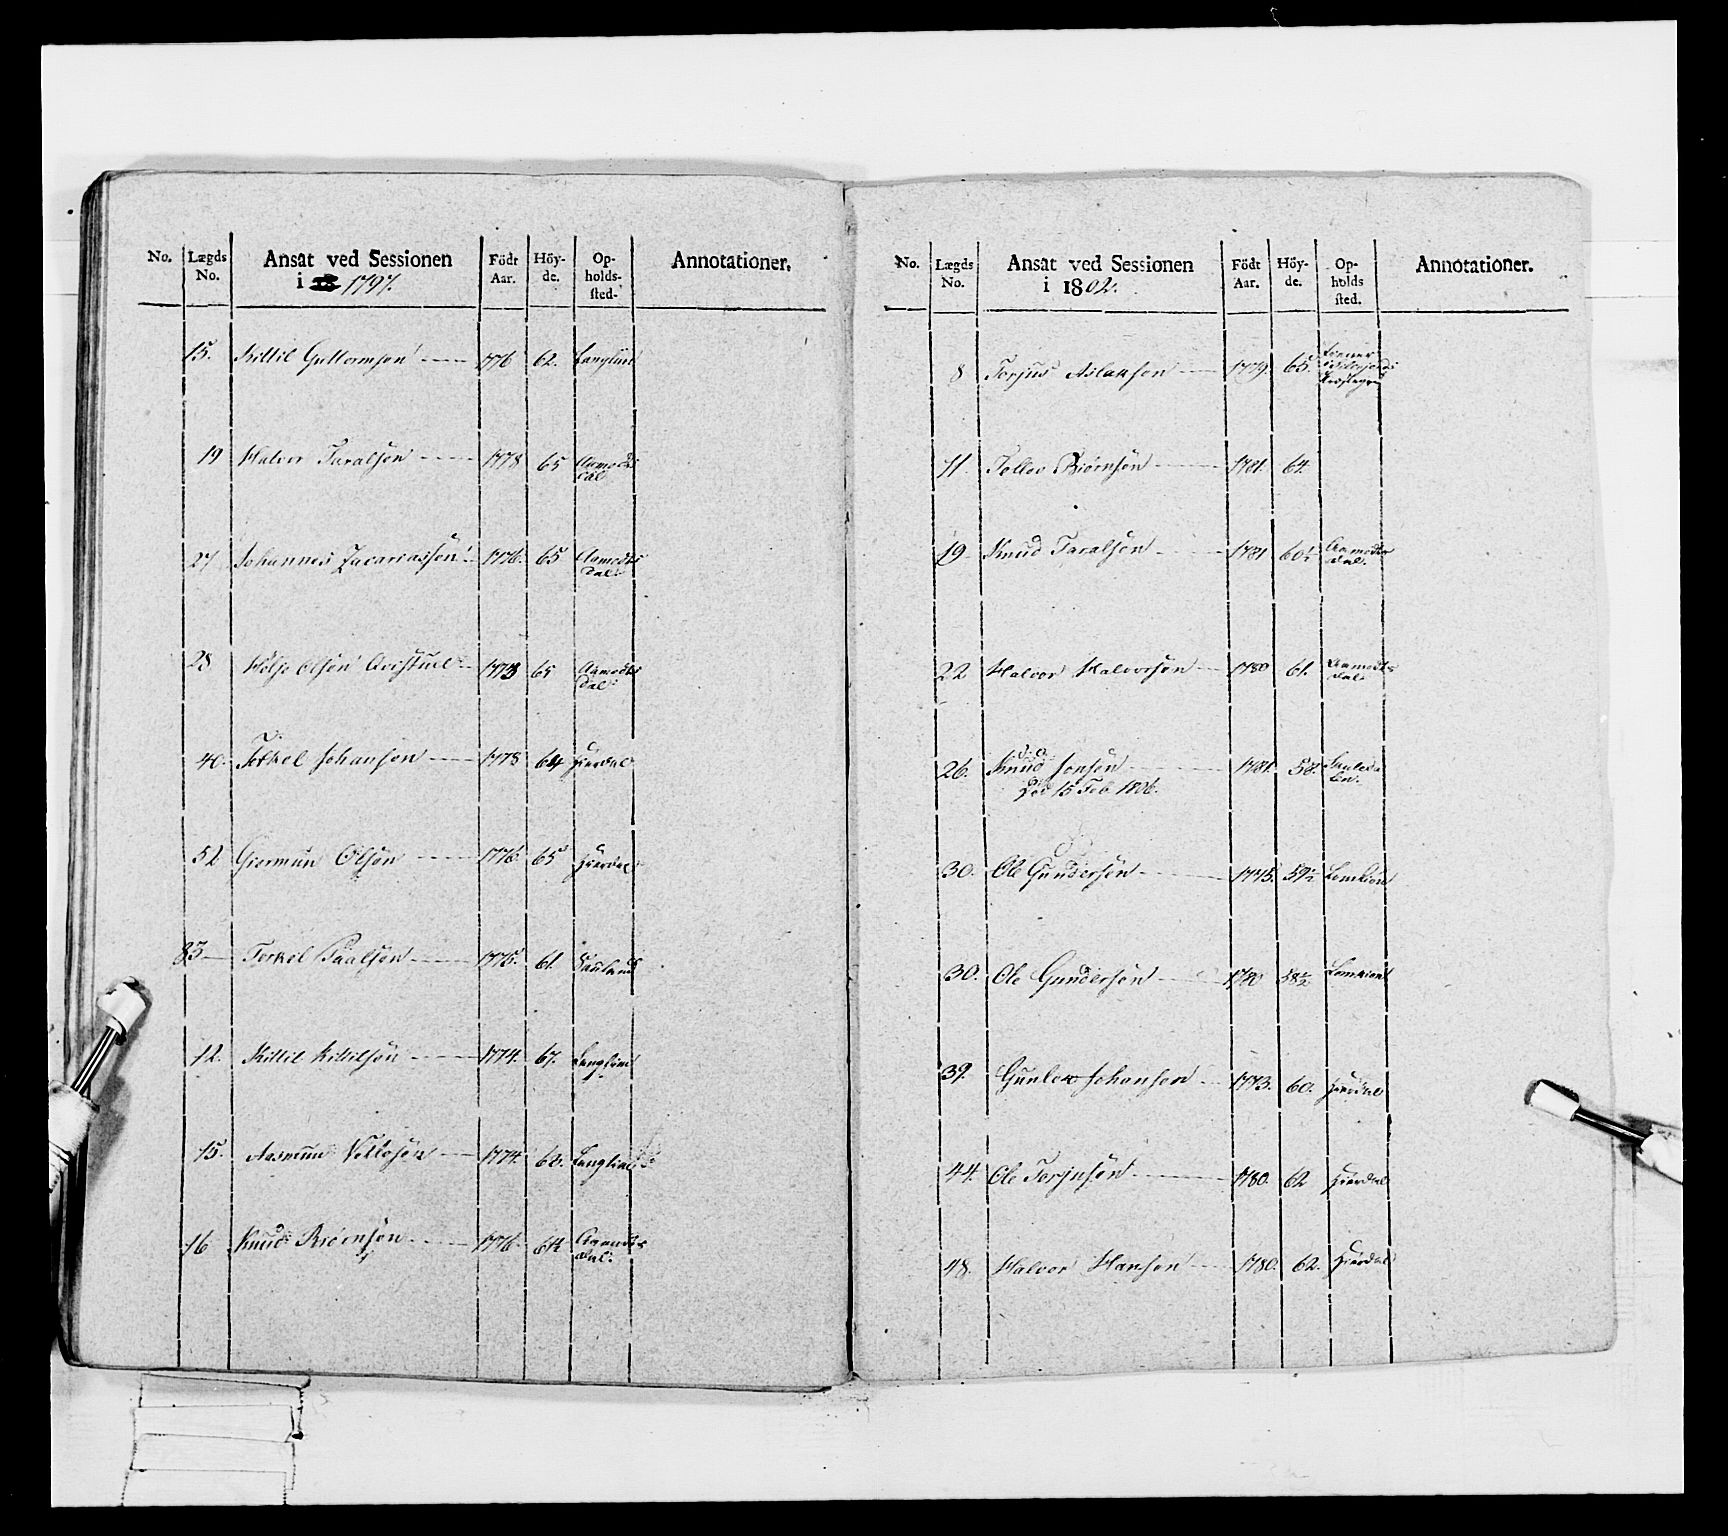 No. Lægds No. Ansat ved Sessionen i 1797. Födt Aar. Höy-de. Op-holds-sted. Annotationer.
15. Kittil Guttormsen 1776 62. Langlim
19 Halvor Taralsen 1778 65 Aamodts dal
27 Johannes Zacariassen 1776. 65 Aamodts dal.
28 Olsen 1773 65 Aamodts dal
40. Torkel Johansen 1778 64 Hierdal
52 Giermun Olsen 1776 65 Hierdal
83 Torkel Paalsen 1775. 61. Sauland
12. Kittil Kittilsen 1774. 67. Langlim
15. Aasmun 1774. Langlim
16 Knud Biørnsen 1776. Aamodts dal.
No. Lægds No. Ansat ved Sessionen i 1802. Födt Aar. Höy-de. Op-holds sted. Annotationer.
8 Torjus Aslaksen 1779. 65.
11. Tollev Biørnsen 1781. 64.
19. Knud Taralsen 1781 60½ Aamodts dal.
22 Halvor Halvorsen 1780 61. Aamodts dal.
26. Knud Jonsen 1781. 58.
Død 15 Feb. 1806.
30. Ole Gundersen 1775. 59½
30. Ole Gundersen 1780 58½
39. Gunlov Johansen 1773. 60. Hierdal
44. Ole Torjusen 1780. 62 Hierdal
48. Halvor Hansen 1780. 62. Hierdal